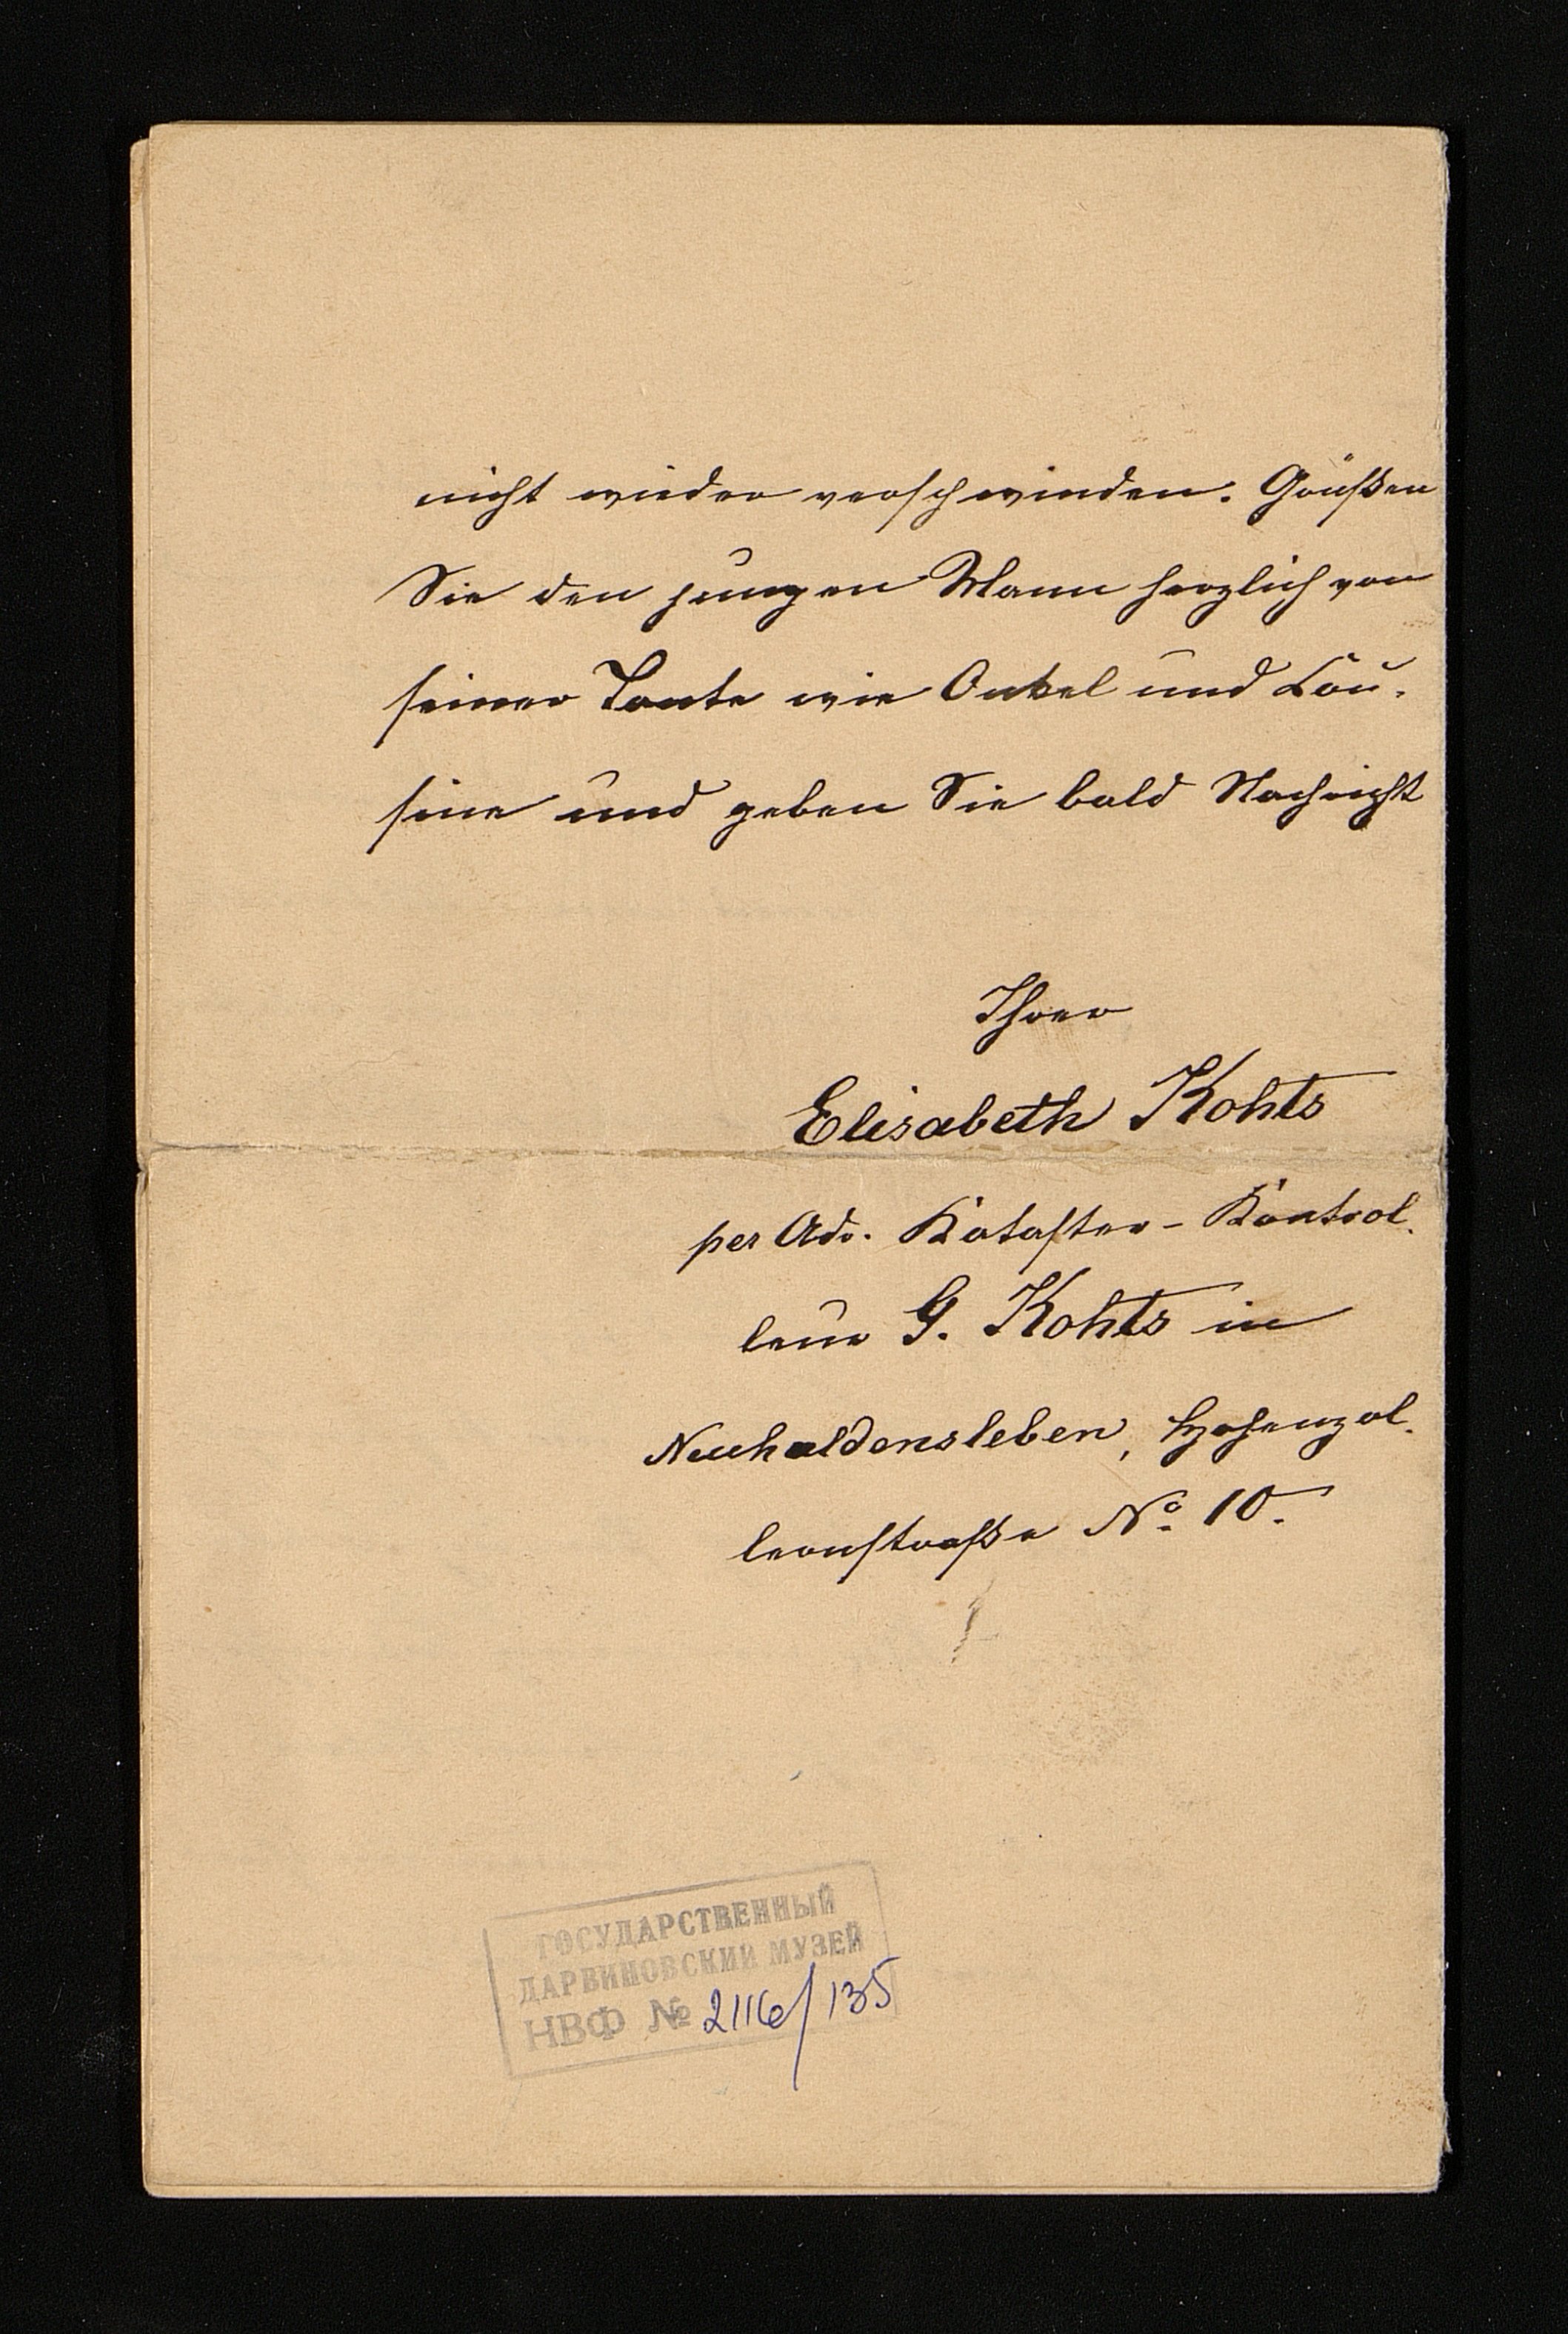 nicht wieder verschwinden. Grüßen
Sie den jungen Mann herzlich von
seiner Tante wie Onkel und Cou-
sine und geben Sie bald Nachricht
Ihrer
Elisabeth Kohts
per Adr. Kataster-Kontrol-
leur G. Kohts in
Neuhaldensleben, Hohenzol-
lernstraße No. 10.
ГОСУДАРСТВЕННЫЙ
ДАРВИНОВСКИЙ МУЗЕЙ
НВФ № 2116/135